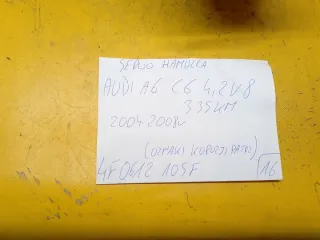 SERWO HAMULCA
AUDI A6 C6 4,2 V8
335KM
2004 2008r
(OZNAKI KOROZJI PATRZ)
4F0612 105F
16